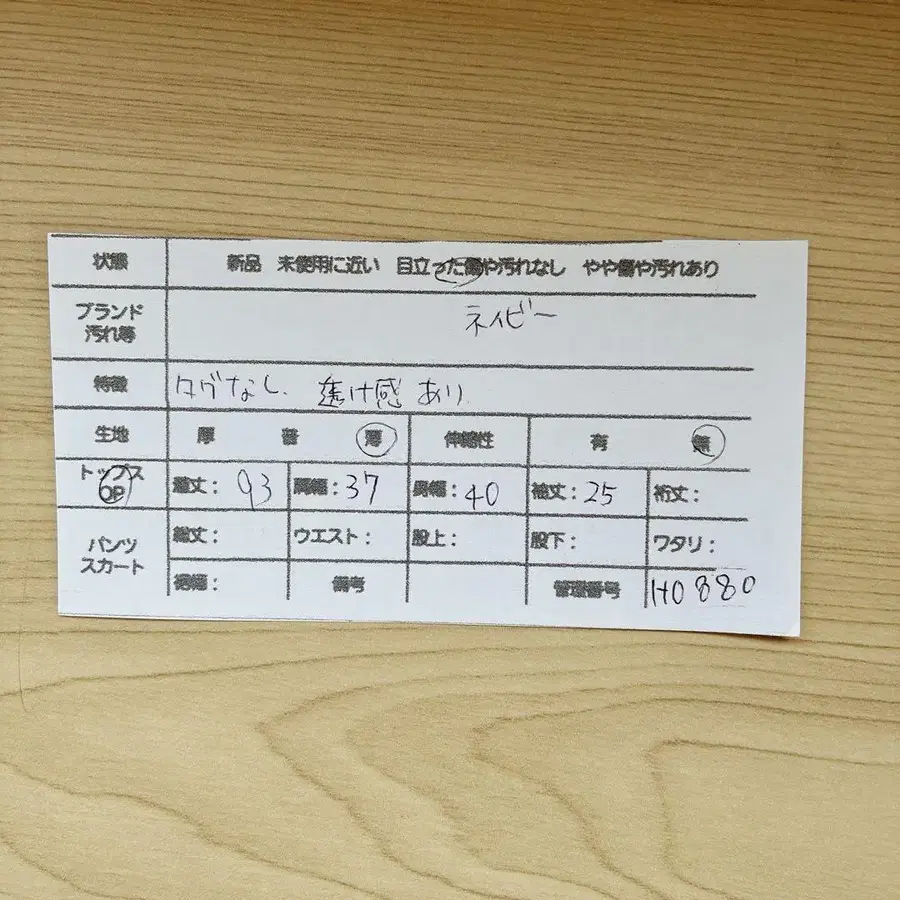 状態 新品 未使用に近い 目立った傷や汚れなし やや傷や汚れあり
ブランド
汚れ等
ネイビー
特徴 タグなし. 透け感 あり
生地 厚 普 薄 伸縮性 有 無
トップス
OP
着丈： 93 肩幅： 37 身幅： 40 袖丈： 25 裄丈：
パンツ
スカート
総丈： ウエスト： 股上： 股下： ワタリ：
裾幅： 備考 管理番号 H0880